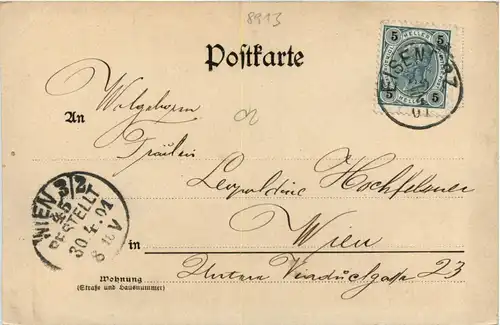 8913
Postkarte
5 HELLER 5
5 HELLER 5
EISENERZ
01
An Wolgeborn
Fräulein
Leopoldine Hochfelsner
WIEN 3/2
BESTELLT
30.4.01
8 V
in Wien
Untere Viaductgasse 23
Wohnung
(Straße und Hausnummer)